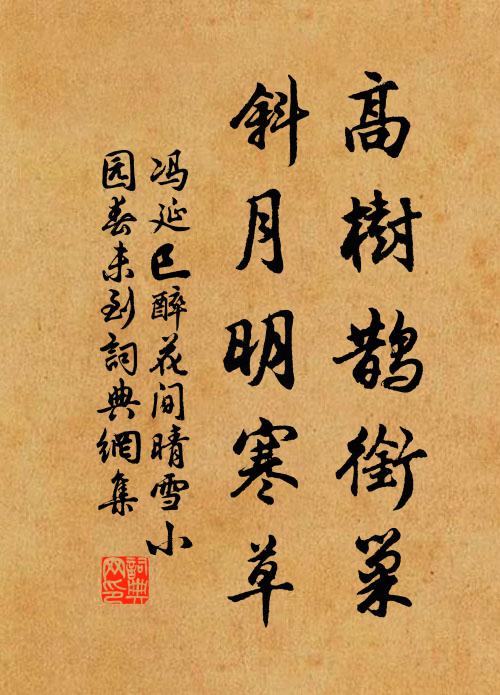 高樹鹊銜巢
斜月明寒草
冯延巳醉花间晴雪小
园春未到詞典網集
詞典
网印